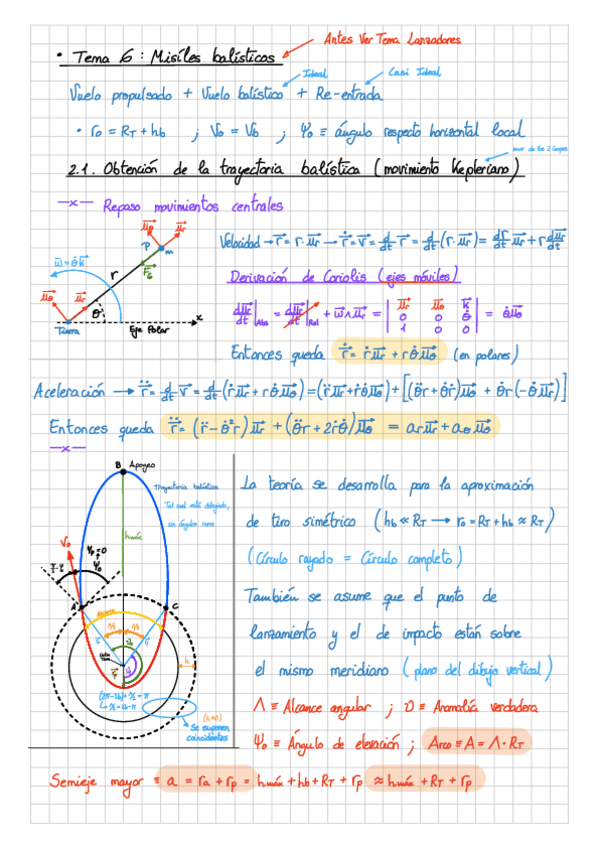 Antes Ver Tema Lanzadores
• Tema 6 : Misiles balísticos
Ideal
Casi Ideal
Vuelo propulsado + Vuelo balístico + Re-entrada
• r₀ = R_T + h_b ; V₀ = V_b ; Ψ₀ ≡ ángulo respecto horizontal local
2.1. Obtención de la trayectoria balística (movimiento Kepleriano)
—x— Repaso movimientos centrales
Velocidad → r⃗ = r·u⃗r → ṙ⃗ = v⃗ = d/dt r⃗ = d/dt (r·u⃗r) = dr/dt u⃗r + r du⃗r/dt
Derivación de Coriolis (ejes móviles)
du⃗r/dt|Abs = du⃗r/dt|Rel + ω⃗∧u⃗r = | u⃗r u⃗θ k⃗ | = θ̇u⃗θ
0 0 θ̇
1 0 0
u⃗θ
u⃗r
P
m
F⃗G
ω⃗ = θ̇k⃗
r
u⃗θ
u⃗r
θ
x
Tierra
Eje Polar
Entonces queda ṙ⃗ = ṙu⃗r + rθ̇u⃗θ (en polares)
Aceleración → r̈⃗ = d/dt v⃗ = d/dt (ṙu⃗r + rθ̇u⃗θ) = (r̈u⃗r + ṙθ̇u⃗θ) + [(θ̈r + θ̇ṙ)u⃗θ + θ̇r(-θ̇u⃗r)]
Entonces queda r̈⃗ = (r̈ - θ̇²r)u⃗r + (θ̈r + 2ṙθ̇)u⃗θ = aru⃗r + aθu⃗θ
—x—
B Apogeo
Trayectoria balística
Tal cual está dibujado,
hmáx
V₀
Ψ₀
A
C
h
Se suponen
coincidentes
La teoría se desarrolla para la aproximación
de tiro simétrico (h_b ≪ R_T → r₀ = R_T + h_b ≈ R_T)
(Círculo rayado = Círculo completo)
También se asume que el punto de
lanzamiento y el de impacto están sobre
el mismo meridiano (plano del dibujo vertical)
Λ ≡ Alcance angular ; υ ≡ Anomalía verdadera
Ψ₀ ≡ Ángulo de elevación ; Arco ≡ A = Λ·R_T
Semieje mayor ≡ a = ra + rp = hmáx + hb + R_T + rp ≈ hmáx + R_T + rp